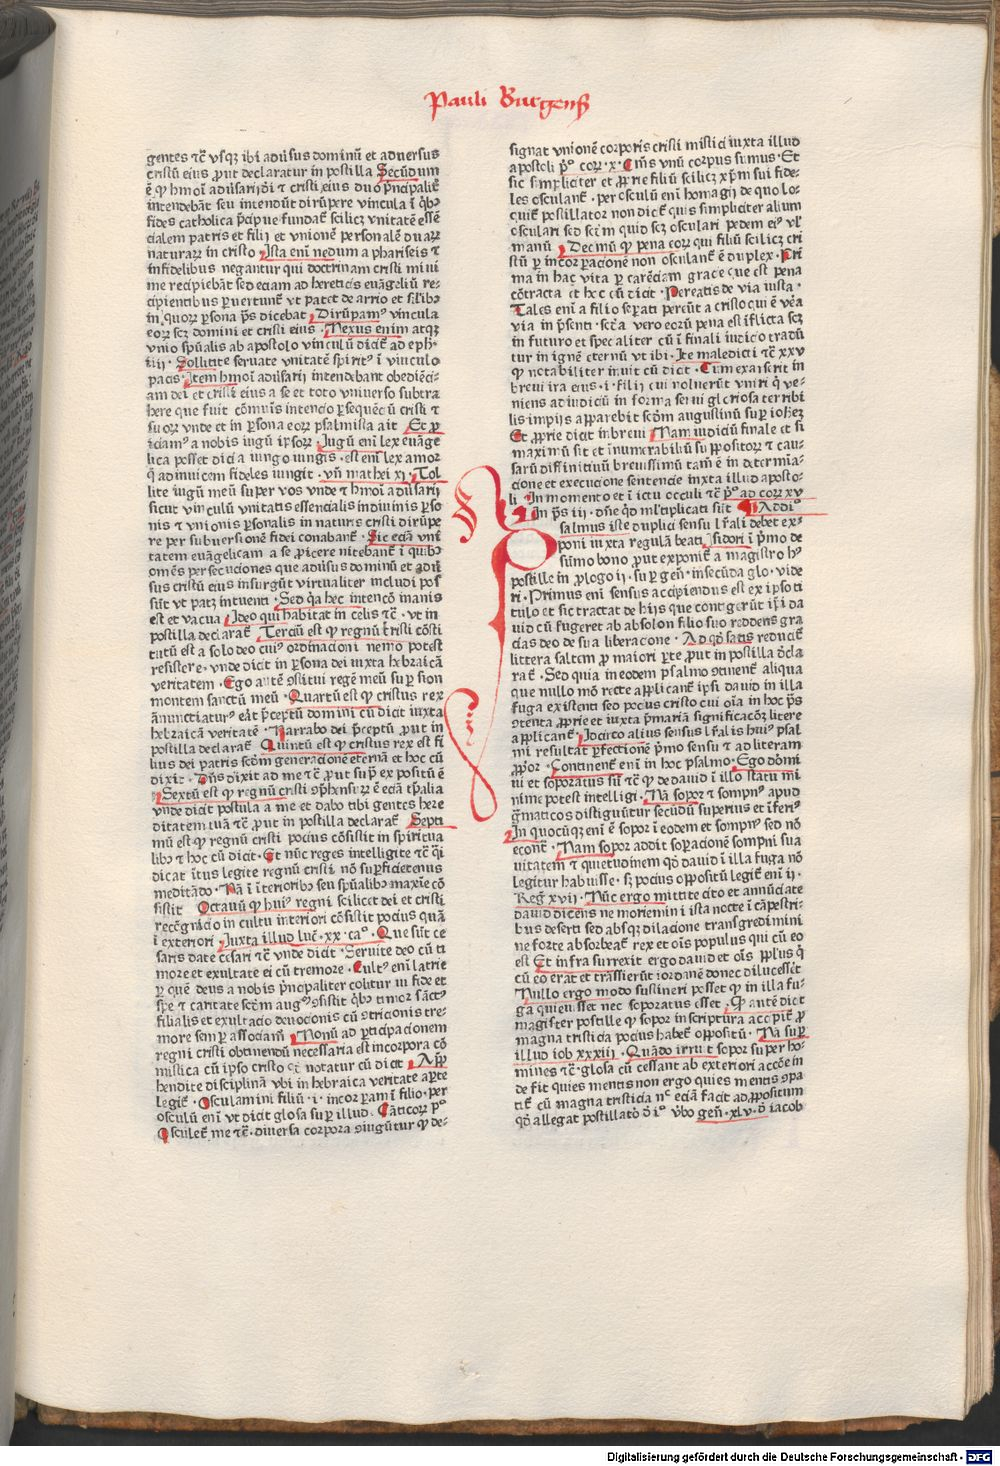 Pauli Burgensꝭ
gentes ⁊c̄ vsqꝫ ibi aduersus dominū et aduersus
cristū eius ꝓut declaratur in postilla Secūdum
ē ꝙ hmōi aduersarij dei ⁊ cristi eius duo p̄ncipalit̄
intendebāt seu intendūt dirūpere vincula ī q̄bꝫ
fides catholica p̄cipue fundat̄ scilicꝫ vnitatē essē
cialem patris et filij et vnionē personalē duarꝝ
naturarꝝ in cristo Ista enī nedum a phariseis ⁊
infidelibus negantur qui doctrinam cristi mini
me recipiebāt sed eciam ad hereticis euāgeliū re-
cipientibus ꝑuertunt̄ vt patet de arrio et silibꝫ
in quorꝝ ꝑsona p̄s dicebat Dirūpamꝰ vincula
eorꝝ scꝫ domini et cristi eius · Nexus enim atqꝫ
vnio spūalis ab apostolo vinculū dicit̄ ad eph·
iiij · Solliciti seruate vnitatē spiritꝰ ī vinculo
pacis · Item hmōi aduersarij intendebant obediēci-
am dei et cristi eius a se et toto vniuerso subtra
here que fuit cōmunis intencio ꝑsequēciū cristi ⁊
suorꝝ vnde et in ꝑsona eorꝝ psalmista ait Et ꝓ
iciamꝰ a nobis iugū ipsorꝝ · Iugū enī lex euāge
lica posset dici a iungo iungis · est enī lex amorꝭ
q̄ adinuicem fideles iungit · vn̄ mathei xi · Tol
lite iugū meū super vos vnde ⁊ hmōi aduersarij
sicut vinculū vnitatis essencialis in diuinis ꝑso
nis ⁊ vnionis ꝑsonalis in naturis cristi dirūpe
re per subuersionē fidei conabant̄ · Sic eciā vni
tatem euāgelicam a se ꝓicere nitebant̄ ī quibꝫ
omēs persecuciones que aduersus dominū et aduer
sus cristū eius insurgūt virtualiter includi pos
sūt vt patꝫ intuenti · Sed q̄a hec intencō inanis
est et vacua Ideo qui habitat in celis ⁊c̄ · vt in
postilla declarat̄ Terciū est ꝙ regnū cristi cōsti
tutū est a solo deo cuiꝰ ordinacioni nemo potest
resistere · vnde dicit in ꝑsona dei iuxta hebraicā
veritatem · Ego autē ꝯstitui regē meū suꝑ sion
montem sanctū meū · Quartū est ꝙ cristus rex
ānunciaturꝰ erat p̄ceptū domini cū dicit iuxta
hebraicā veritatē · Narrabo dei p̄ceptū ꝓut in
postilla declarat̄ Quintū est ꝙ cristus rex est fi
lius dei patris scd̄m generacionē eternā et hoc cū
dixit · Dn̄s dixit ad me ⁊c̄ ꝓut supͣ expositū ē
Sextū est ꝙ regnū cristi ꝯp̄hensurꝝ ē eciā tꝑalia
vnde dicit postula a me et dabo tibi gentes here
ditatem tuā ⁊c̄ ꝓut in postilla declarat̄ Septi
mū est ꝙ regnū cristi pocius cōsistit in spiritua
libꝫ ⁊ hoc cū dicit · Et nūc reges intelligite ⁊c̄ q̄i
dicat ītus legite regnū cristi nō suꝑficietenus
meditādo · Nā ī īterioribꝫ seu spūalibꝫ maxīe cō
sistit Octauū ꝙ huiꝰ regni scilicet dei et cristi
recōgnicio in cultu interiori cōsistit pocius quā
ī exteriori Iuxta illud luc̄ · xx · caº · Que sūt ce
saris date cesari ⁊c̄ vnde dicit · Seruite deo cū ti
more et exultate ei cū tremore · Cultꝰ enī latrie
ꝑ quē deus a nobis p̄ncipaliter colitur in fide et
spe ⁊ caritate scd̄m augꝰ ꝯsistit q̄bꝫ timor sāctꝰ
filialis et exultacio deuocionis cū ꝯtricionis tre-
more semꝑ associant̄ Nonū ad ꝑticipacionem
regni cristi obtinendū necessaria est incorpora cō
mistica cū ipso cristo qd̄ notatur cū dicit · App̄
hendite disciplinā vbi in hebraica veritate aꝑte
legit̄ · Osculamini filiū · i · incorꝑamī filio · per
osculū enī vt dicit glosa suꝑ illud · Cāticorꝝ pº
Osculet̄ me ⁊c̄ · diuersa corpora ꝯiūgūtur ꝙ de-
signat vnionē corporis cristi mistici iuxta illud
apostoli pº corꝝ · x · Om̄s vnū corpus sumus · Et
sic simpliciter et ꝓprie filiū scilicꝫ xp̄m sui fide-
les osculant̄ · per osculū enī homagij de quo lo-
quit̄ postillator non dicit̄ quis simpliciter alium
osculari sed scd̄m quid scꝫ osculari pedem eiꝰ vl̓
manū Decimū ꝙ pena eorꝝ qui filiū scilicꝫ cri
stū ꝑ incorꝑacionē non osculant̄ ē duplex · Pri
ma in hac vita ꝑ carēciam gracie que est pena
cōtracta et hec cū dicit · Pereatis de via iusta ·
Tales enī a filio seꝑati pereūt a cristo qui ē vera
via in p̄senti · scd̄a vero eorū pena est īflicta scꝫ
in futuro et specialiter cū ī finali iudicio tradū
tur in ignē eternū vt ibi · Ite maledicti ⁊c̄ xxv
ꝙ notabiliter inuit cū dicit · Cum exarserit in
breui ira eius · i · filij cui noluerūt vniri q̄ ve-
niens ad iudiciū in forma serui gloriosa terribi
lis impijs apparebit scd̄m augustinū suꝑ iohēꝫ
Et ꝓprie dicit in breui Nam iudiciū finale et si
maximū sit et īnumerabiliū suppositorꝝ ⁊ cau-
sarū diffinitiuū breuissimū tamē ē in determīa-
cione et execucione sentencie iuxta illud aposto-
li · In momento et ī ictu occuli ⁊c̄ pº ad corꝝ xv
In p̄s iij · dn̄e q̄d ml̓tiplicati sūt Addiº
Psalmus iste duplici sensu lr̄ali debet ex-
poni iuxta regulā beati Isidori ī pºmo de
sūmo bono ꝓut exponit̄ a magistro hꝰ
postille in ꝓlogo ij · suꝑ gen̄ · in secūda glo · vide
ri · Primus enī sensus accipiendus est ex ipso ti
tulo et sic tractat de hijs que contigerūt ip̄i da
uid cū fugeret ab absolon filio suo reddens gra
cias deo de sua liberacione · Ad qd̄ satis reducit̄
littera saltem ꝓ maiori ꝑte ꝓut in postilla decla
rat̄ · Sed quia in eodem psalmo ꝯtinent̄ aliqua
que nullo mō recte applicant̄ ipsi dauid in illa
fuga existenti sed pocius cristo cui oīa in hoc p̄s
ꝯtenta ꝓprie et iuxta pͥmariā significacōꝫ litere
applicant̄ Idcirco alius sensus lr̄alis huiꝰ psal
mi resultat ꝑfectionē pͥmo sensu ⁊ ad literam
ꝓpͥor · Continent̄ enī in hoc psalmo · Ego dormi
ui et soporatus sū ⁊c̄ ꝙ de dauid ī illo statu mi
nime potest intelligi · Nā sopor ⁊ sompnꝰ apud
gͣmaticos distiguūtur secūdū superius et īferiꝰ
In quocūqꝫ enī ē sopor ī eodem et sompnꝰ sed nō
econt̄ · Nam sopor addit soꝑacionē sompni sua
uitatem ⁊ quietudinem qd̄ dauid ī illa fuga nō
legitur habuisse · sꝫ pocius oppositū legit̄ enī ij ·
Reḡ xvij · Nūc ergo mittite cito et annūciate
dauid dicens ne moriemini ista nocte ī cāpestri-
bus deserti sed absqꝫ dilacione transgredimini
ne forte absorbeat̄ rex et oīs populus qui cū eo
est Et infra surrexit ergo dauid et oīs ppl̓us q̄
cū eo erat et trāssierūt iordanē donec dilucesset
Nullo ergo modo sustineri posset ꝙ in illa fu-
ga quieuisset nec soporatus esset · Qd̄ autē dicit
magister postille ꝙ sopor in scriptura accipit̄ ꝓ
magna tristicia pocius habet̄ oppositū · Nā suꝑ
illud iob xxxiij · Quādo irruit sopor super ho-
mines ⁊c̄ · glosa cū cessant ab exteriori accōe in
de fit quies mentis non ergo quies mentis ꝯpa
tit̄ cū magna tristicia nec eciā facit ad ꝓpositum
qd̄ allegat postillator de iº vͦbo gen̄ · xlv · de iacob